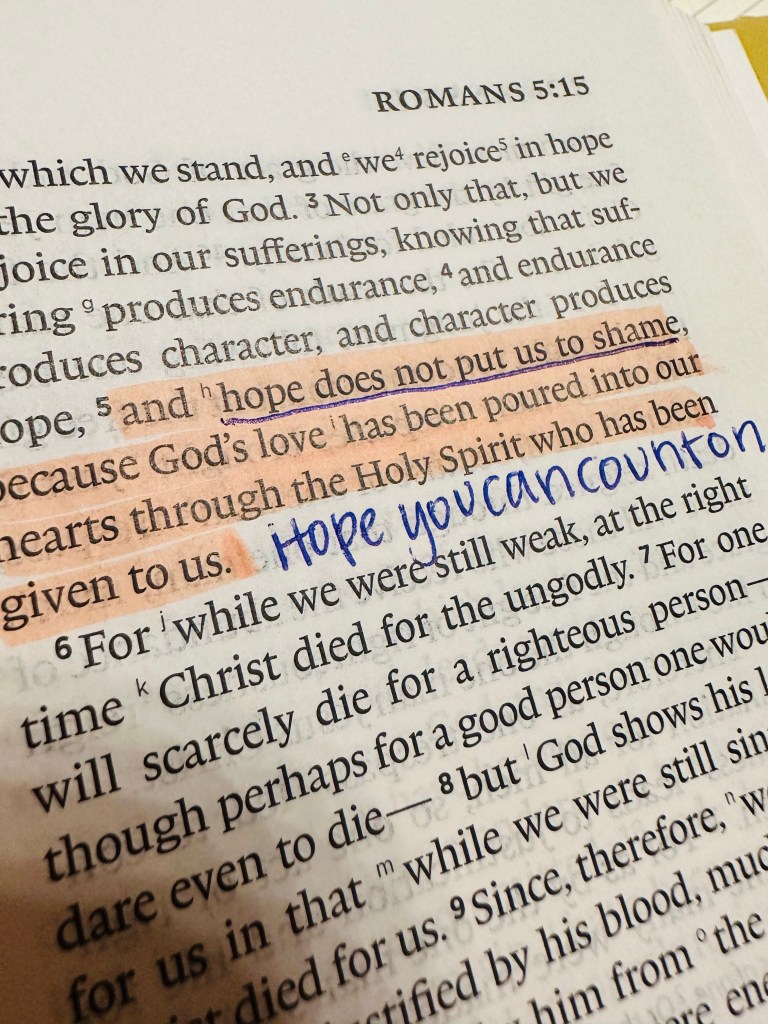 ROMANS 5:15
which we stand, and ᵉwe⁴ rejoice⁵ in hope
the glory of God. ³Not only that, but we
joice in our sufferings, knowing that suf-
ring ᵍproduces endurance, ⁴and endurance
roduces character, and character produces
ope, ⁵and ʰhope does not put us to shame,
because God's love ⁱhas been poured into our
hearts through the Holy Spirit who has been
given to us. Hope you can count on
⁶For ʲwhile we were still weak, at the right
time ᵏChrist died for the ungodly. ⁷For one
will scarcely die for a righteous person—
though perhaps for a good person one wou
dare even to die—⁸but ˡGod shows his l
for us in that ᵐwhile we were still sin
died for us. ⁹Since, therefore, ⁿw
ctified by his blood, muc
him from ᵒthe
ene